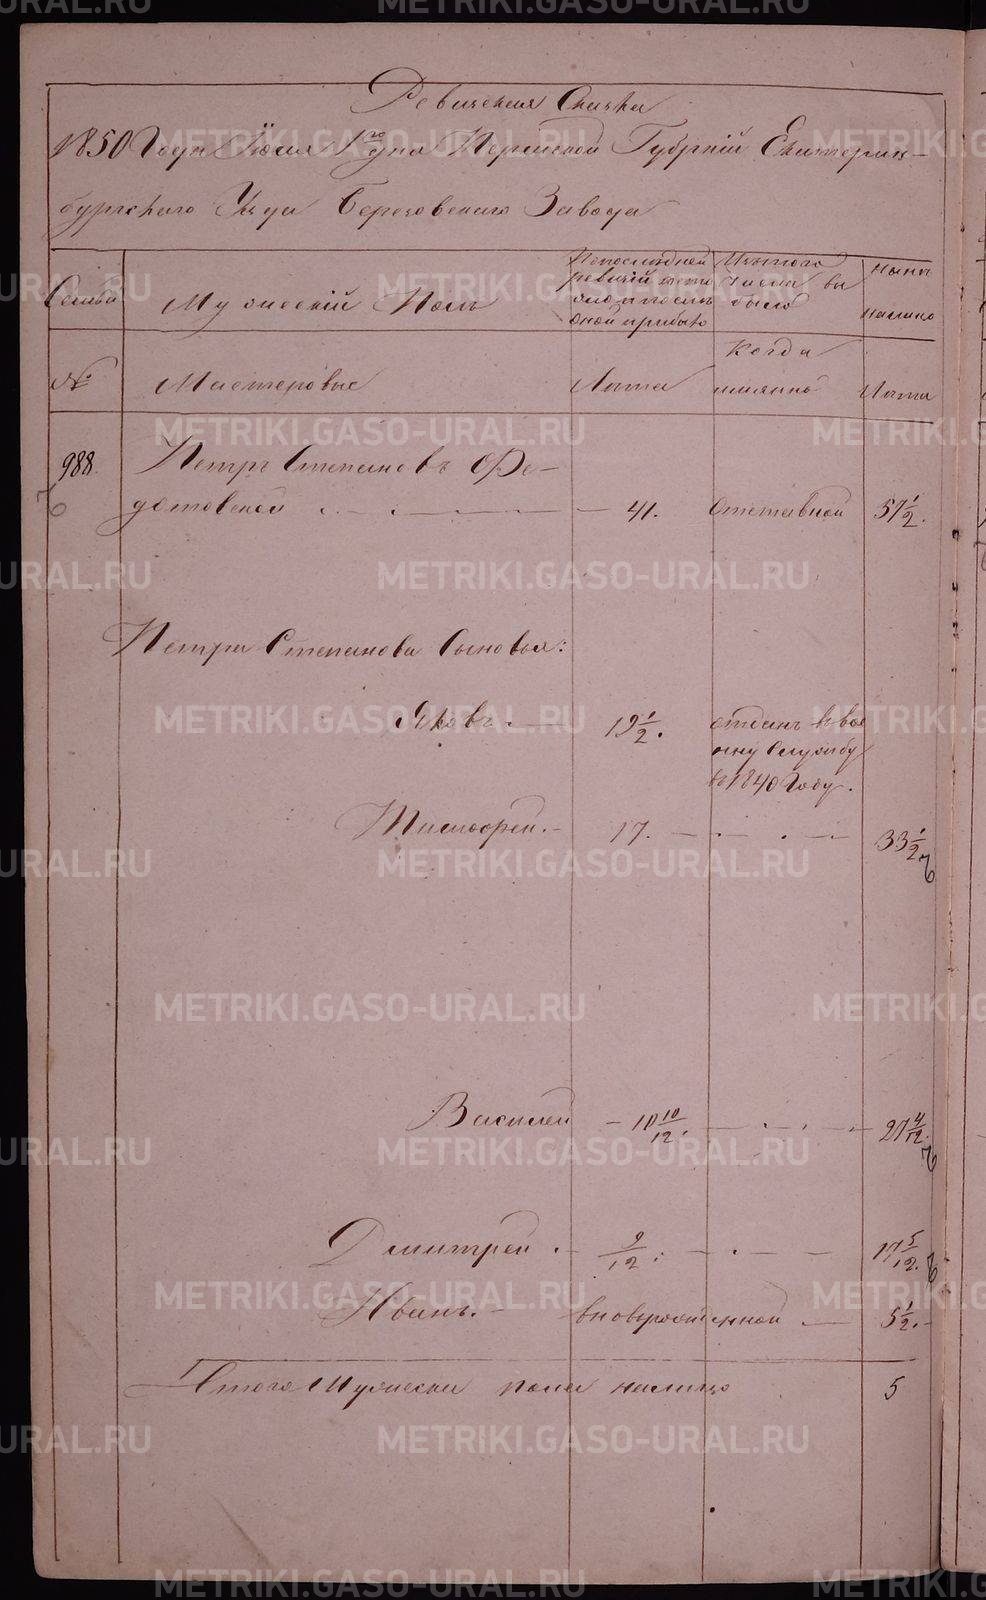 Ревизская Сказка
1850 Года Июля 1го дня Пермской Губрній Екатерин-
бургскаго Уезда Березовскаго Завода
Семьи
Мужескій Полъ
По последней
ревизій состо
яло и после
оной прибыло
Изътого
числа вы
было
ныне
налицо
№
Мастеровые
Лета
Когда
имянно
Лета
988.
Петръ Степановъ Фе-
дотовской
41.
отставной
51 1/2.
Петра Степанова Сыновья:
Яковъ.
19 1/2.
отданъ в вое
нну Службу
въ 1840 Году.
Тимофей.
17.
33 1/2
Василей
10 10/12.
27 4/12.
Дмитрей
9/12.
17 5/12.
Иванъ.
вновьрожденной
5 1/2.
Итого Мужеска пола налицо
5
METRIKI.GASO-URAL.RU